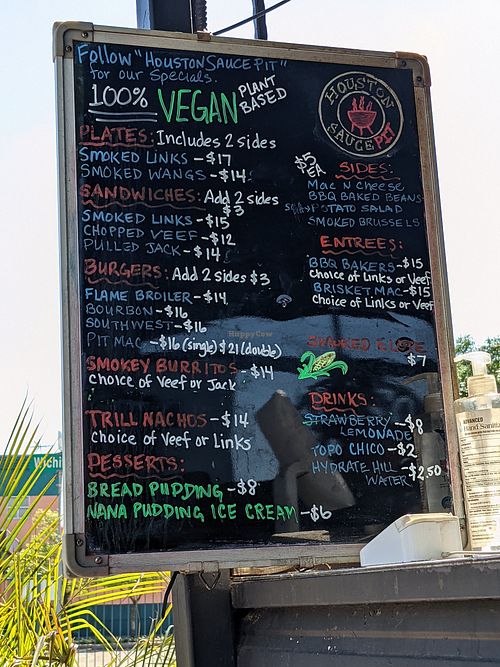 Follow "HOUSTON SAUCE PIT"
for our Specials.
100% VEGAN PLANT BASED
PLATES: Includes 2 sides
SMOKED LINKS - $17
SMOKED WANGS - $14
SANDWICHES: Add 2 sides
$3
SMOKED LINKS - $15
CHOPPED VEEF - $12
PULLED JACK - $14
BURGERS: Add 2 sides $3
FLAME BROILER - $14
BOURBON - $16
SOUTHWEST - $16
PIT MAC - $16 (single) $21 (double)
SMOKEY BURRITOS - $14
choice of Veef or Jack
TRILL NACHOS - $14
choice of Veef or Links
DESSERTS:
BREAD PUDDING - $8
NANA PUDDING ICE CREAM - $6
HOUSTON
SAUCE PIT
$5 EA
SIDES:
MAC N CHEESE
BBQ BAKED BEANS
POTATO SALAD
SMOKED BRUSSELS
ENTREES:
BBQ BAKERS - $15
choice of Links or Veef
BRISKET MAC - $15
choice of Links or Veef
SMOKED
$7
DRINKS:
STRAWBERRY - $8
LEMONADE
TOPO CHICO - $2
HYDRATE HILL - $2.50
WATER
HappyCow
ADVANCED
Hand Sanitiz
Wichi